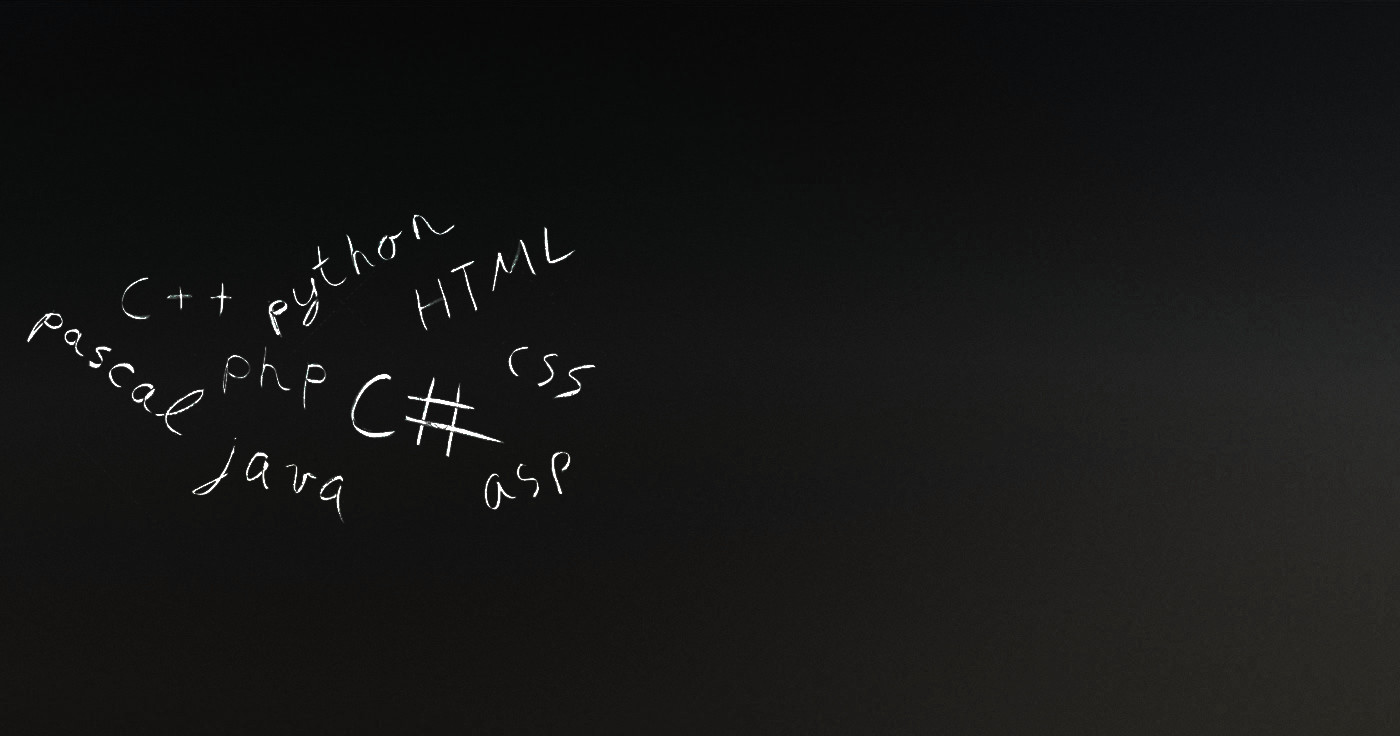 python
HTML
C++
pascal
php
css
C#
java
asp